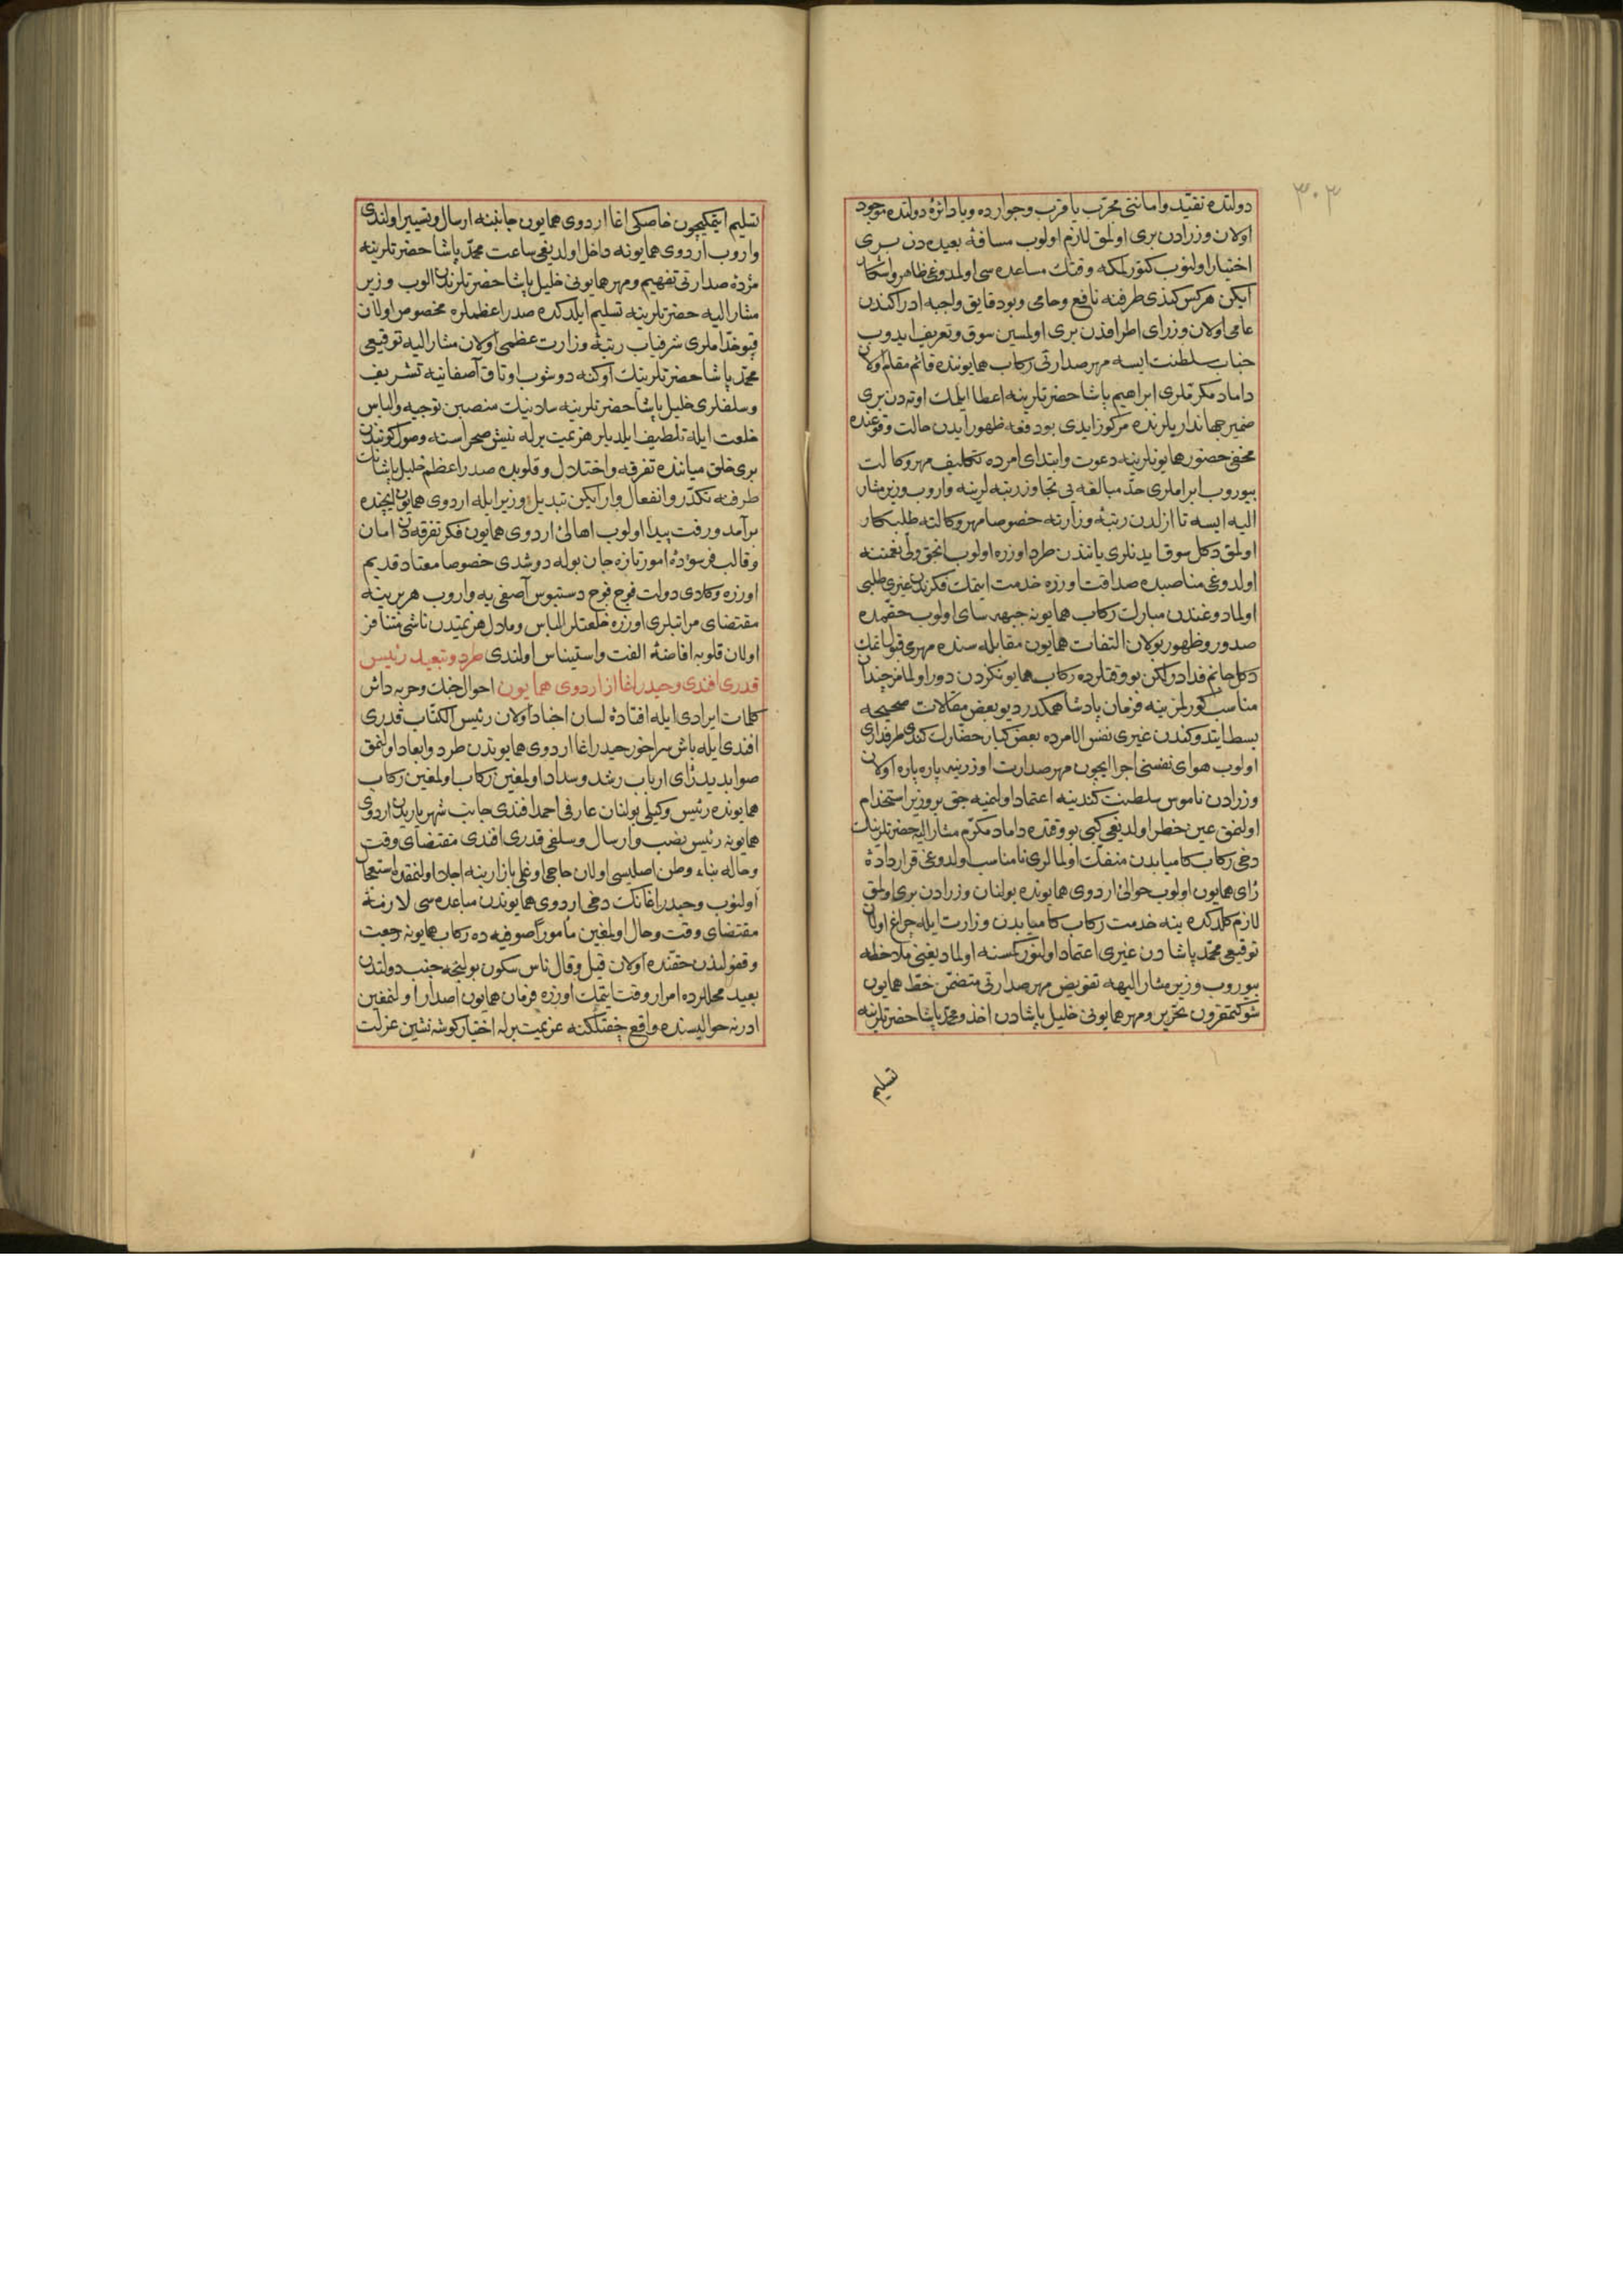 ٣٠٣
دولتده تقیّد و امانتی مجرّب یا قرب و جوارده و یا دائرۀ دولتده موجود
اولان وزرادن بری اولمق لازم اولوب مسافۀ بعیده دن بری
اختیار اولنوب کتورلمکه وقتك مساعده سی اولمدوغی ظاهر و آشکار
ایکن هر کس کندی طرفنه نافع و حامی و بو دقایق واجبه ادراکندن
عامی اولان وزرای اطرافدن بری اولمسین سوق و تعریف ایدوب
جناب سلطنت ایسه مهر صدارتی رکاب همایونده قائم مقام اولان
داماد مکرّملری ابراهیم پاشا حضرتلرینه اعطا ایلمك اوته دن بری
ضمیر جهانداریلرنده مرکوز ایدی بو دفعه ظهور ایدن حالت وقوعنده
مخفی حضور همایونلرینه دعوت و ابتدای امرده تکلیف مهر وکالت
بیوروب ابراملری حدّ مبالغه یی تجاوز رتبه لرینه واروب وزیر مشار
الیه ایسه تا ازلدن رتبۀ وزارته خصوصا مهر وکالته طلبکار
اولمق دکل سوق ایدنلری یانندن طرد اوزره اولوب انجق ولی نعمتنه
اولدوغی مناصبده صداقت اوزره خدمت ایتمك فکرندن غیری طلبی
اولمادوغندن مبارك رکاب همایونه جبهه سای اولوب حقمده
صدور و ظهور بولان التفات همایون مقابله سنده مهری قبول اتمك
دکل جانم فدادر لکن بو وقتلرده رکاب همایونکزدن دور اولمامز چندان
مناسب کورلمز ینه فرمان پادشاهمکدر دیو بعض مقالات صحیحه
بسط ایتدوکندن غیری نفس الامرده بعض کبار حضارك کندی طرفداری
اولوب هوای نفسنی اجرا ایچون مهر صدارت اوزرینه پاره پاره اولان
وزرادن ناموس سلطنت کندینه اعتماد اولنمیه جق بر وزیر استخدام
اولنمق عین خطر اولدیغی کبی بو وقتده داماد مکرّم مشار الیه حضرتلرینك
دخی رکاب کامیابدن منفك اولمالری نامناسب اولدوغی قرار دادۀ
رای همایون اولوب حوالئ اردوی همایونده بولنان وزرادن بری اولمق
لازم کلدکده ینه خدمت رکاب کامیابدن وزارت ایله چراغ اولان
توقیعی محمّد پاشادن غیری اعتماد اولنور کمسنه اولمادیغنی ملاحظه
بیوروب وزیر مشار الیهه تفویض مهر صدارتی متضمّن خطّ همایون
شوکتمقرون تحریر و مهر همایونی خلیل پاشادن اخذ و محمّد پاشا حضرتلرینه
تسلیم
تسلیم ایتمکیچون خاصکی اغا اردوی همایون جانبنه ارسال و تسییر اولندی
واروب اردوی همایونه داخل اولدیغی ساعت محمّد پاشا حضرتلرینه
مژدۀ صدارتی تفهیم و مهر همایونی خلیل پاشا حضرتلرندن الوب وزیر
مشار الیه حضرتلرینه تسلیم ایلدکده صدر اعظملره مخصوص اولان
قپو خدّاملری شرفیاب رتبۀ وزارت عظمی اولان مشار الیه توقیعی
محمّد پاشا حضرتلرینك اوکنه دوشوب اوتاق آصفانیه تشریف
و سلفلری خلیل پاشا حضرتلرینه سلانیك منصبین توجیه و الباس
خلعت ایله تلطیف ایلدیلر هزیمت برله نیش صحراسنه وصول کونندن
بری خلق میاننده تفرقه و اختلال و قلوبده صدر اعظم خلیل پاشانك
طرفنه تکدّر و انفعال وار ایکن تبدیل وزیر ایله اردوی همایون ایچنده
برآمد و رفت پیدا اولوب اهالئ اردوی همایون فکر تفرقه دن امان
و قالب فرسودۀ امور تازه جان بوله دوشدی خصوصا معتاد قدیم
اوزره وکلای دولت فوج فوج دستبوس آصفی یه واروب هر برینه
مقتضای مراتبلری اوزره خلعتلر الباس و ملال هزیمتدن ناشی متنافر
اولان قلوبه افاضۀ الفت و استیناس اولندی طرد و تبعید رئیس
قدری افندی و حیدر اغا از اردوی همایون احوال جنك و حربه دائر
کلمات ایرادی ایله افتادۀ لسان اجناد اولان رئیس الکتّاب قدری
افندی ایله باش میراخور حیدر اغا اردوی همایوندن طرد و ابعاد اولنمق
صوابدید رای ارباب رشد و سداد اولمغین رکاب اولمغین رکاب
همایونده رئیس وکیلی بولنان عارفی احمد افندی جانب شهریاریدن اردوی
همایونه رئیس نصب و ارسال و سلفی قدری افندی مقتضای وقت
و حاله بناء وطن اصلیسی اولان حاجی اوغلی بازارینه اجلا اولنمقده استعجال
اولنوب و حیدر اغانك دخی اردوی همایوندن مباعده سی لازمۀ
مقتضای وقت و حال اولمغین مأمورا صوفیه ده رکاب همایونه رجعت
و قفولندن حقنده اولان قیل و قال ناس سکون بولنجه جنب دولتدن
بعید محللرده امرار وقت ایتمك اوزره فرمان همایون اصدار اولنمغین
ادرنه حوالیسنده واقع چفتلکنه عزیمت برله اختیار کوشه نشین عزلت